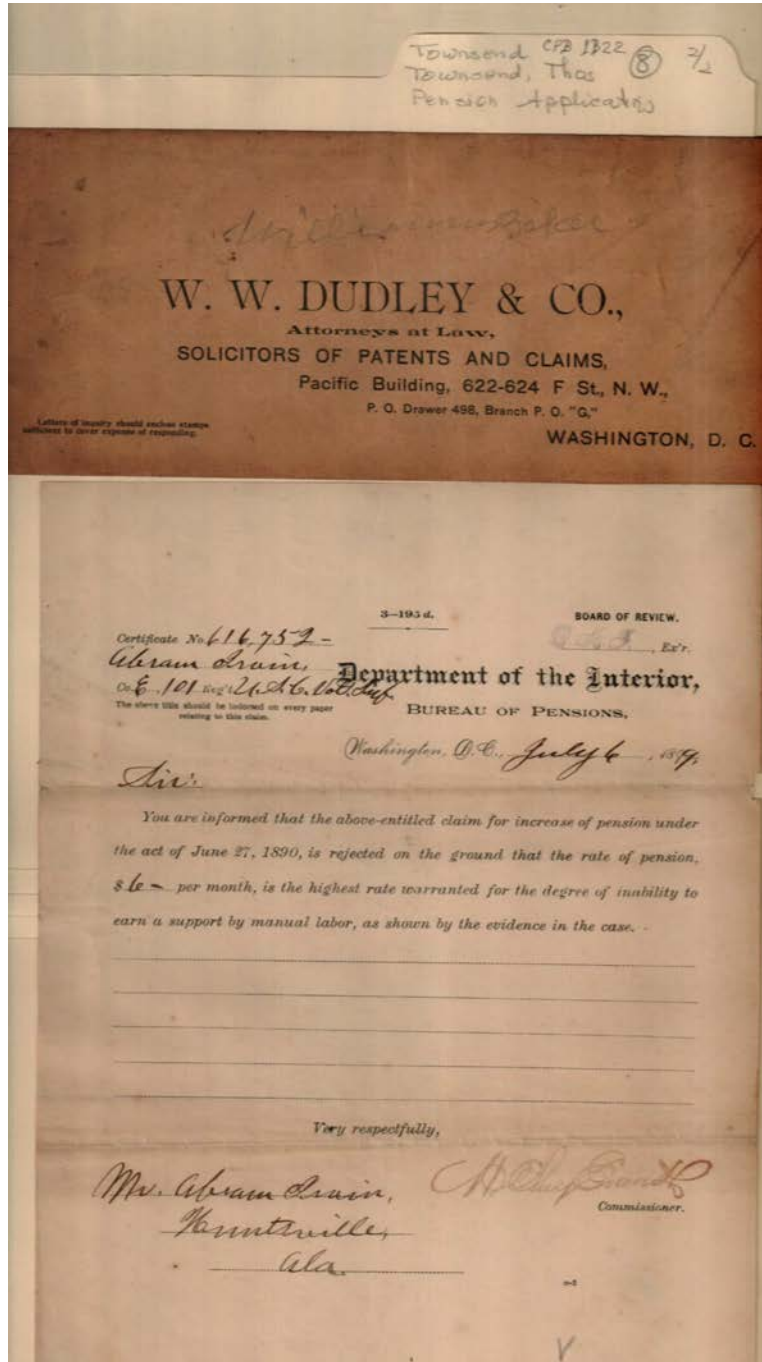 Townsend CPB 1B22 ⑧ 2/2
Townsend, Thos
Pension Applications
Baker
W. W. DUDLEY & CO.,
Attorneys at Law,
SOLICITORS OF PATENTS AND CLAIMS,
Pacific Building, 622-624 F St., N. W.,
P. O. Drawer 498, Branch P. O. "G,"
Letters of inquiry should enclose stamps
sufficient to cover expense of responding.
WASHINGTON, D. C.
3—195 d.
BOARD OF REVIEW.
Certificate No. 616,752 -
Ex'r.
Abram Irvin,
Department of the Interior,
Co. E, 101 Reg't U.S.C. Vol. Inf
The above title should be indorsed on every paper
relating to this claim.
BUREAU OF PENSIONS,
Washington, D. C., July 6, 189
Sir:
You are informed that the above-entitled claim for increase of pension under
the act of June 27, 1890, is rejected on the ground that the rate of pension,
$ 6 - per month, is the highest rate warranted for the degree of inability to
earn a support by manual labor, as shown by the evidence in the case.
Very respectfully,
Mr. Abram Irvin,
H Clay Evans
Commissioner.
Huntsville,
Ala.
V